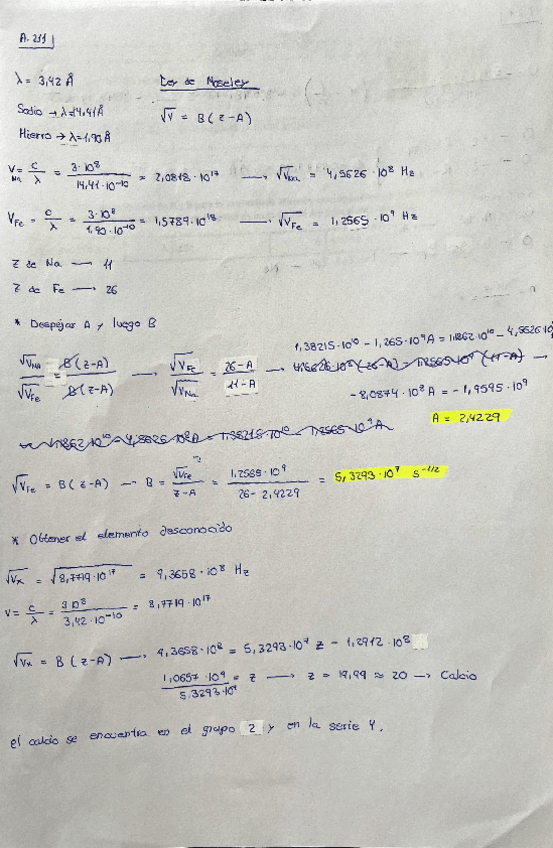 A.211
λ = 3,42 Å
Ley de Moseley
Sodio → λ=14,41Å
√V = B(z-A)
Hierro → λ=1,90Å
V Na = c/λ = 3·10⁸ / 14,41·10⁻¹⁰ = 2,0818·10¹⁷ → √V Na = 4,5626·10⁸ Hz
V Fe = c/λ = 3·10⁸ / 1,90·10⁻¹⁰ = 1,5789·10¹⁸ → √V Fe = 1,2565·10⁹ Hz
Z de Na → 11
Z de Fe → 26
* Despejar A y luego B
1,38215·10¹⁰ - 1,265·10⁹A = 1,1862·10¹⁰ - 4,5626·10⁸
√V Na / √V Fe = B(z-A) / B(z-A) → √V Fe / √V Na = 26-A / 11-A →
-8,0874·10⁸ A = -1,9595·10⁹
A = 2,4229
√V Fe = B(z-A) → B = √V Fe / z-A = 1,2565·10⁹ / 26-2,4229 = 5,3293·10⁷ s⁻¹/²
* Obtener el elemento desconocido
√Vx = √8,7719·10¹⁷ = 9,3658·10⁸ Hz
V = c/λ = 3·10⁸ / 3,42·10⁻¹⁰ = 8,7719·10¹⁷
√Vx = B(z-A) → 9,3658·10⁸ = 5,3293·10⁷ z - 1,2912·10⁸
1,0657·10⁹ / 5,3293·10⁷ = z → z = 19,99 ≈ 20 → Calcio
El calcio se encuentra en el grupo 2 y en la serie 4.